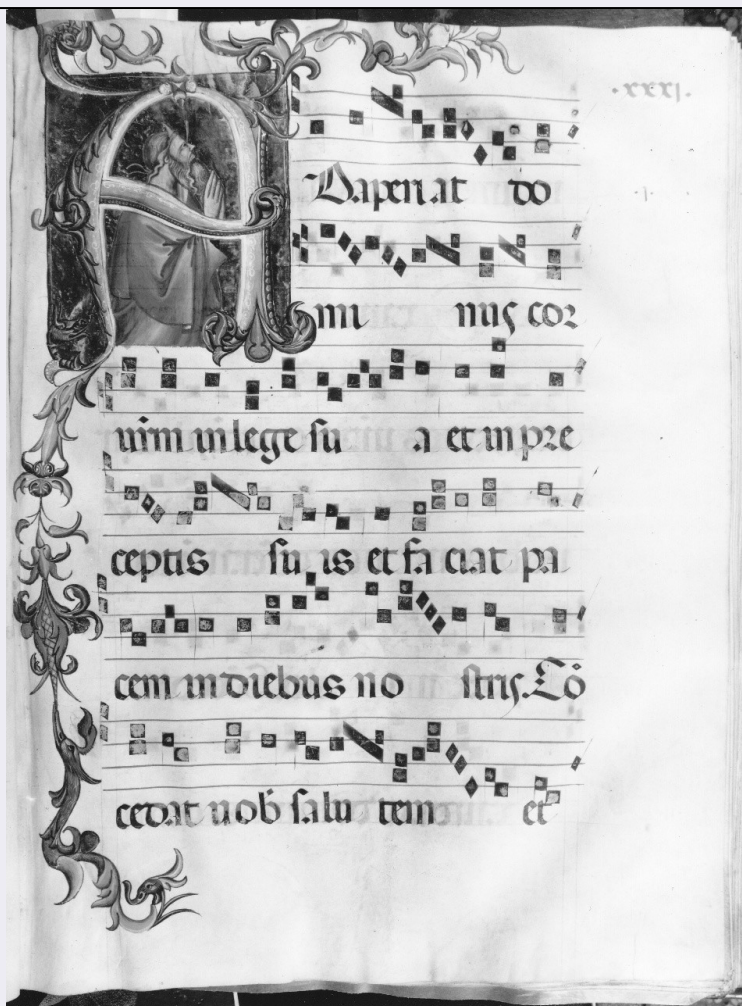 ·xxxj·
ADaperiat do
mi nus cor
ur̄m in lege su a et in pre
ceptis su is et fa ciat pa
cem in diebus no stris. Cō
cedat uob̄ salu tem et